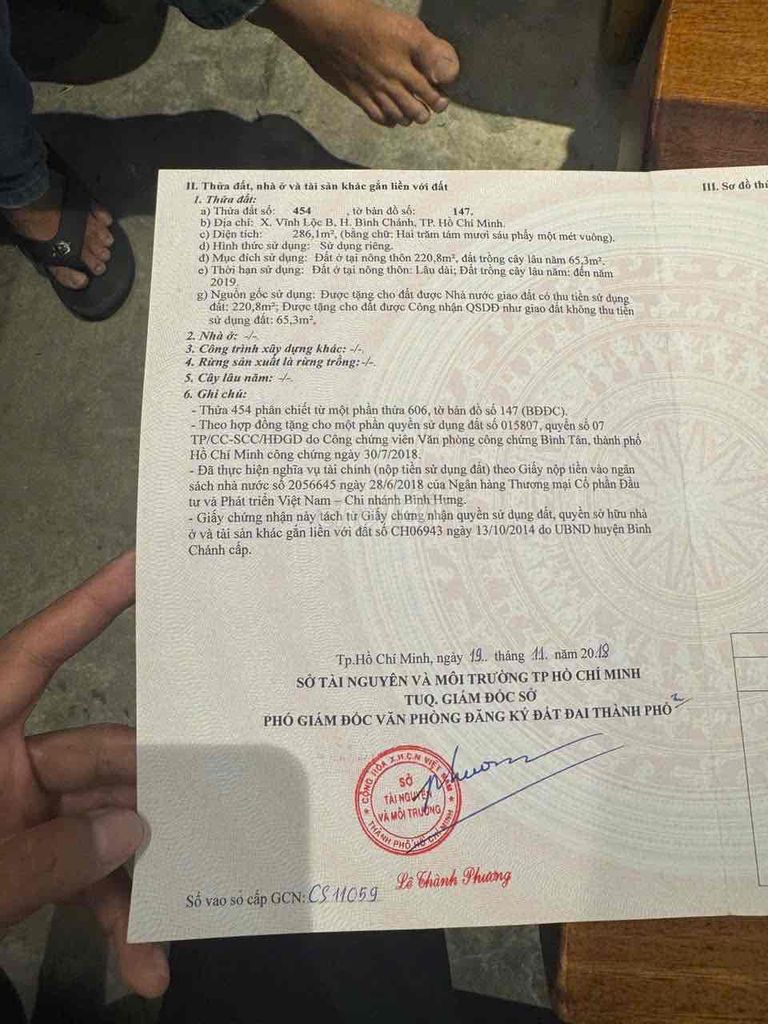 II. Thửa đất, nhà ở và tài sản khác gắn liền với đất
1. Thửa đất:
a) Thửa đất số: 454 , tờ bản đồ số: 147.
b) Địa chỉ: X. Vĩnh Lộc B, H. Bình Chánh, TP. Hồ Chí Minh.
c) Diện tích: 286,1m², (bằng chữ: Hai trăm tám mươi sáu phẩy một mét vuông).
d) Hình thức sử dụng: Sử dụng riêng.
đ) Mục đích sử dụng: Đất ở tại nông thôn 220,8m², đất trồng cây lâu năm 65,3m².
e) Thời hạn sử dụng: Đất ở tại nông thôn: Lâu dài; Đất trồng cây lâu năm: đến năm
2019.
g) Nguồn gốc sử dụng: Được tặng cho đất được Nhà nước giao đất có thu tiền sử dụng
đất: 220,8m²; Được tặng cho đất được Công nhận QSDĐ như giao đất không thu tiền
sử dụng đất: 65,3m².
2. Nhà ở: -/-.
3. Công trình xây dựng khác: -/-.
4. Rừng sản xuất là rừng trồng: -/-.
5. Cây lâu năm: -/-.
6. Ghi chú:
- Thửa 454 phân chiết từ một phần thửa 606, tờ bản đồ số 147 (BĐĐC).
- Theo hợp đồng tặng cho một phần quyền sử dụng đất số 015807, quyển số 07
TP/CC-SCC/HĐGD do Công chứng viên Văn phòng công chứng Bình Tân, thành phố
Hồ Chí Minh công chứng ngày 30/7/2018.
- Đã thực hiện nghĩa vụ tài chính (nộp tiền sử dụng đất) theo Giấy nộp tiền vào ngân
sách nhà nước số 2056645 ngày 28/6/2018 của Ngân hàng Thương mại Cổ phần Đầu
tư và Phát triển Việt Nam – Chi nhánh Bình Hưng.
- Giấy chứng nhận này tách từ Giấy chứng nhận quyền sử dụng đất, quyền sở hữu nhà
ở và tài sản khác gắn liền với đất số CH06943 ngày 13/10/2014 do UBND huyện Bình
Chánh cấp.
Tp.Hồ Chí Minh, ngày 19.. tháng 11. năm 2018
SỞ TÀI NGUYÊN VÀ MÔI TRƯỜNG TP HỒ CHÍ MINH
TUQ. GIÁM ĐỐC SỞ
PHÓ GIÁM ĐỐC VĂN PHÒNG ĐĂNG KÝ ĐẤT ĐAI THÀNH PHỐ
CỘNG HÒA X.H.C.N VIỆT NAM
SỞ
TÀI NGUYÊN
VÀ MÔI TRƯỜNG
THÀNH PHỐ HỒ CHÍ MINH
Lê Thành Phương
Số vào sổ cấp GCN: CS11059
III. Sơ đồ